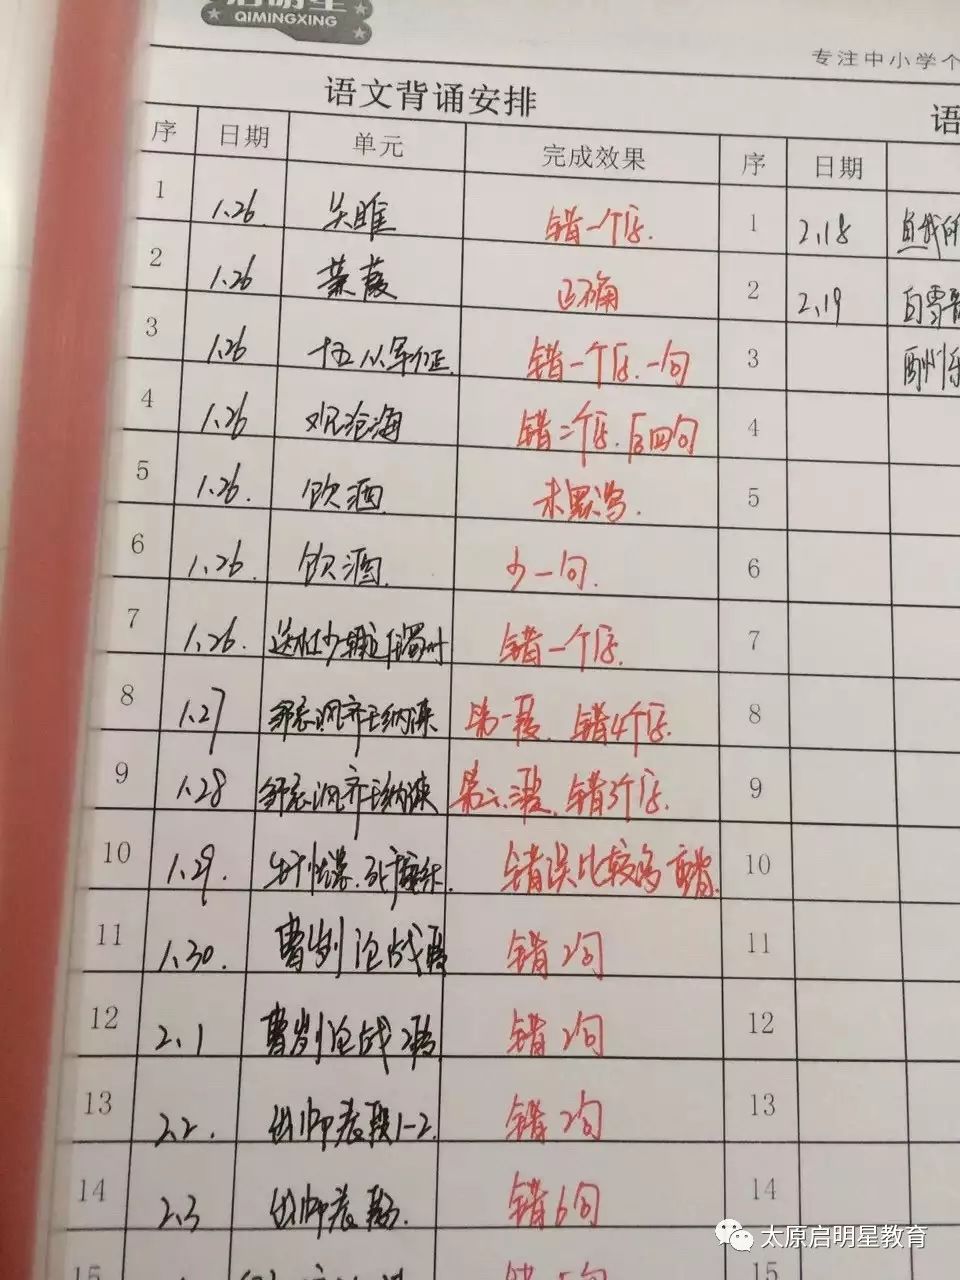 启明星
QIMINGXING
专注中小学个
语文背诵安排
语
序 日期 单元 完成效果 序 日期
1 1.26. 关雎 错一个字. 1 2.18
2 1.26 蒹葭 正确 2 2.19 白雪
3 1.26 十五从军征. 错一个字.一句 3
4 1.26 观沧海 错二个字.后四句 4
5 1.26. 饮酒 未默写. 5
6 1.26. 饮酒. 少一句. 6
7 1.26. 送杜少府之任蜀州 错一个字. 7
8 1.27 邹忌讽齐王纳谏 第一段. 错4个字. 8
9 1.28 邹忌讽齐王纳谏 第二.三段. 错3个字. 9
10 1.29. 错误比较多 10
11 1.30. 曹刿论战 错2句 11
12 2.1 曹刿论战 错2句 12
13 2.2. 出师表段1-2. 错2句 13
14 2.3 出师表 错6句 14
15 15
太原启明星教育